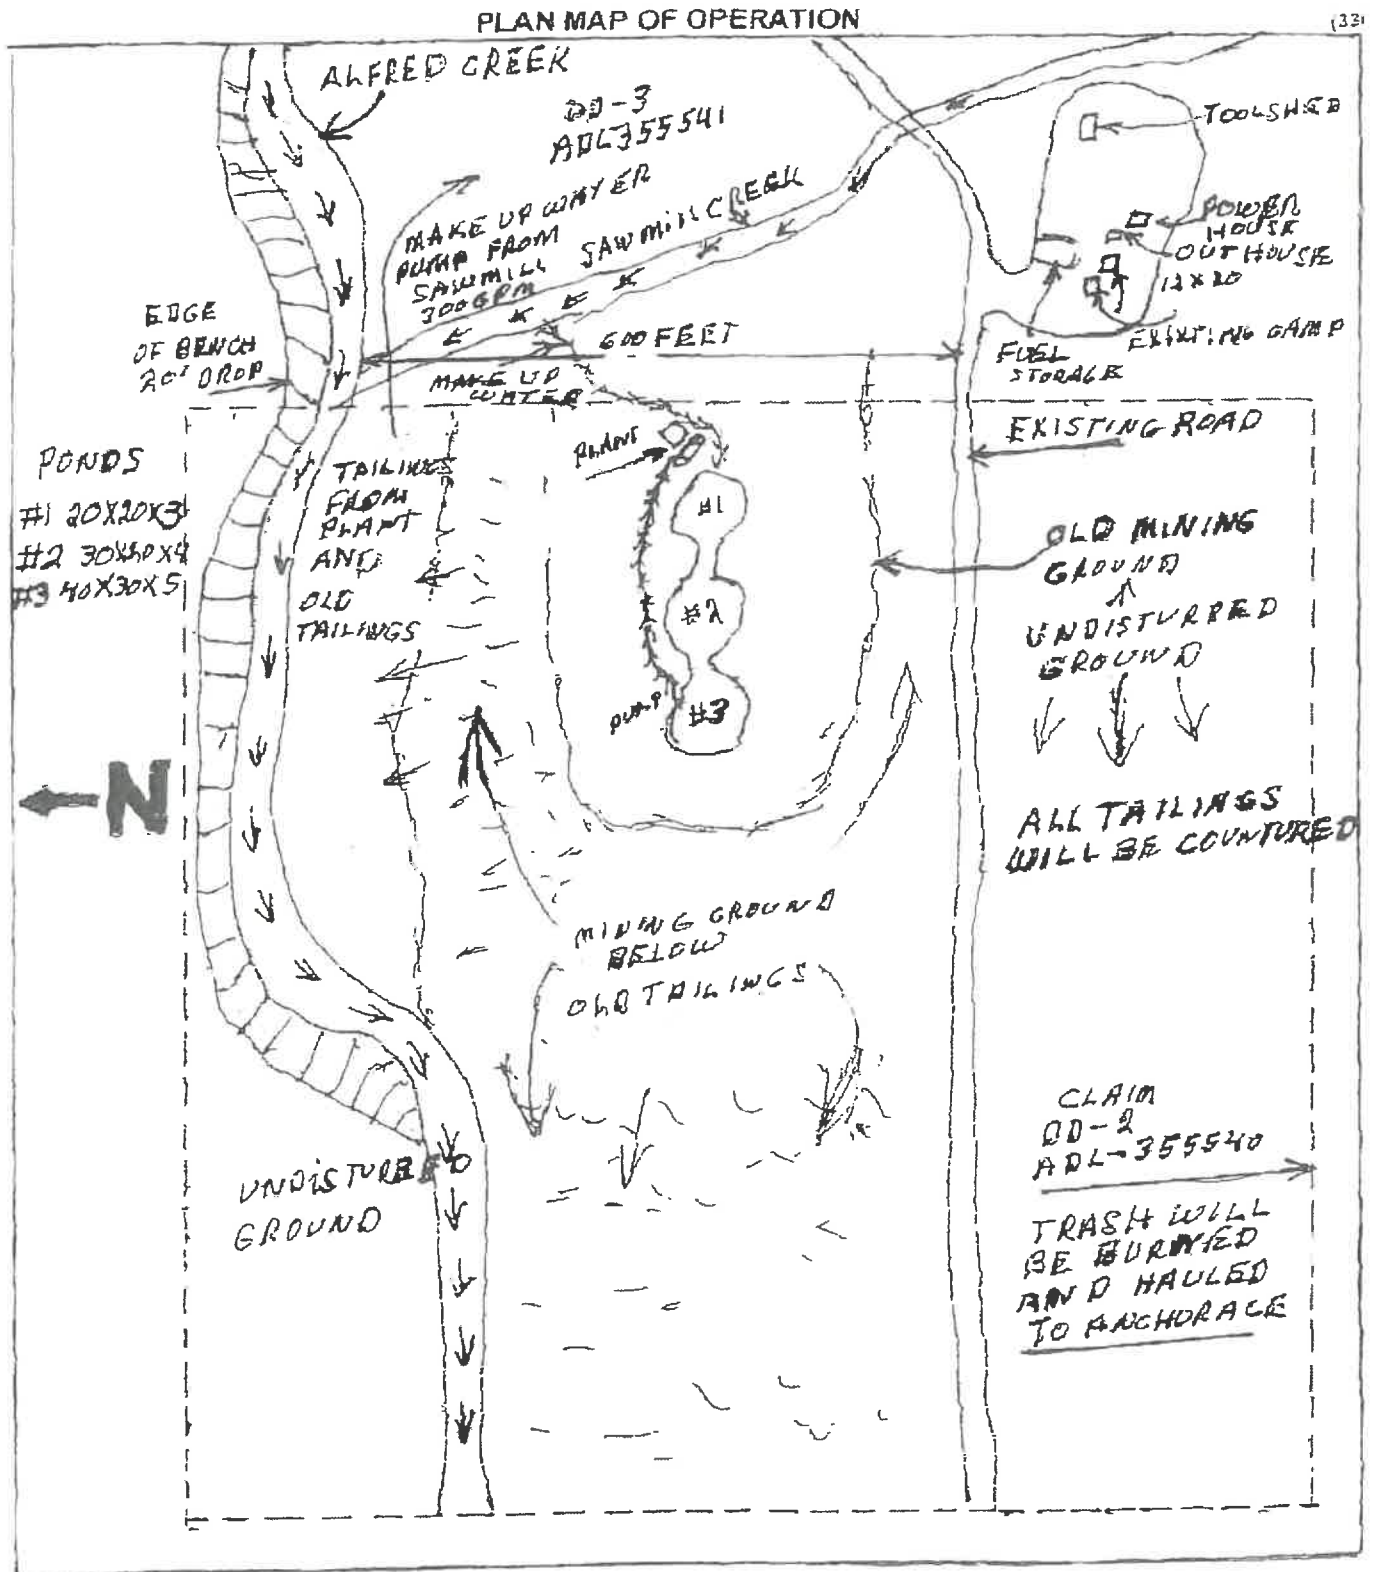 PLAN MAP OF OPERATION
(33)
ALFRED CREEK
DD-3
ADL355541
MAKE UP WATER
PUMP FROM
SAWMILL
300GPM
SAWMILL CREEK
TOOLSHED
POWER
HOUSE
OUTHOUSE
12X20
EXISTING CAMP
FUEL
STORAGE
EDGE
OF BENCH
20' DROP
600 FEET
MAKE UP
WATER
EXISTING ROAD
PLANT
PONDS
#1 20X20X3
#2
#3 40X30X5
TAILINGS
FROM
PLANT
AND
OLD
TAILINGS
#1
#2
#3
PUMP
OLD MINING
GROUND
UNDISTURBED
GROUND
N
ALL TAILINGS
WILL BE COUNTURED
MINING GROUND
BELOW
OLD TAILINGS
CLAIM
DD-2
ADL-355540
UNDISTURBED
GROUND
TRASH WILL
BE
AND HAULED
TO ANCHORAGE